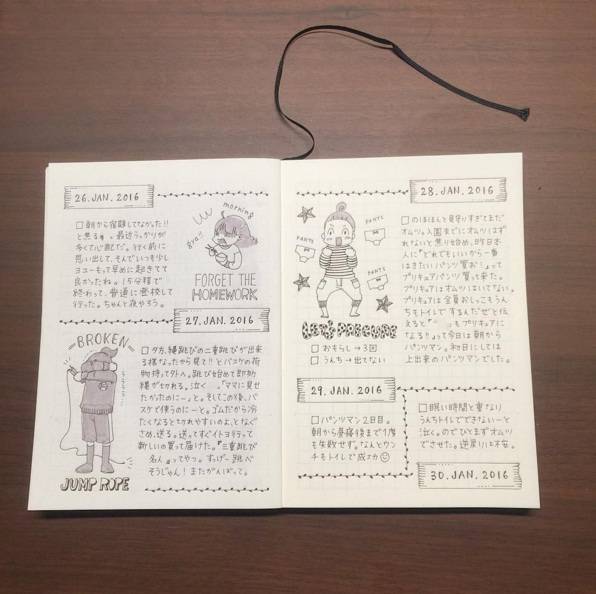 26.JAN.2016
□朝から宿題してなかった!!
と焦る。最近うっかりが
多くて心配だ。行く前に
思い出して、そんでいつも少し
ヨユーもって早めに起きてて
良かったね。15分程で
終わって、普通に登校して
行った。ちゃんと夜やろう。
morning
FORGET THE
HOMEWORK
27.JAN.2016
BROKEN
□夕方、縄跳びの二重跳びが出来
る様なったから見て!!とバスケの荷
物持って外へ。跳び始めて即効
縄がきれる。泣く 。「ママに見せ
たかったのにー」と。そしてこの後、バ
スケで使うのにーと。ゴムだから冷
たくなるときれやすいのよ、となぐ
さめ、送る。送ってすぐイトヨ行って
新しいの買って届けた。『二重跳び
名人』ってやつ。すっげー跳べ
そうじゃん!またがんばって。
JUMP ROPE
28.JAN.2016
PANTS
PANTS
PANTS
□のほほんと見守りすぎてまだ
オムツ。入園までにオムツはず
れないと焦り始め、昨日本
人に『どれでもいいから一番
はきたいパンツ買お!』って
プリキュアパンツ買って来た。
プリキュアはオムツはいてない。
プリキュアは全員おしっこもうん
ちもトイレでするんだぜと伝
えると『 もプリキュアに
なる!!』って今日は朝から
パンツマン。初日にしては
上出来のパンツマンでした。
□おもらし→3回
□うんち→出てない
29.JAN.2016
□パンツマン2日目。
朝から昼寝後まで1度
も失敗せず。なんとウン
チもトイレで成功
□眠い時間と重なり
うんちトイレでできないーと
泣く。のでひとまずオムツ
でさせた。逆戻りに不安。
30.JAN.2016